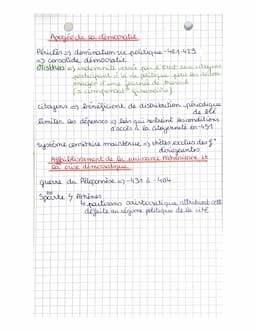 Apogée de sa démocratie
Périclès => domination vie politique -461-429
=> consolide démocratie
=> indemnité versée par l'État aux citoyens
participant à la vie politique pour les dédom
mager d'une journée de travail
(= compensat° financière)
citoyens => bénéficient de distribution périodique
de blé
limiter les dépenses => loi qui restreint les conditions
d'accès à la citoyenneté en -451
système censitaire maintenue => thètes exclus des f°
dirigeantes
Affaiblissement de la puissance Athénienne et
sa crise démocratique
guerre du Péloponnèse => -431 à -404
Sparte Athènes
partisans aristocratique attribuent cette
défaite au régime politique de la cité